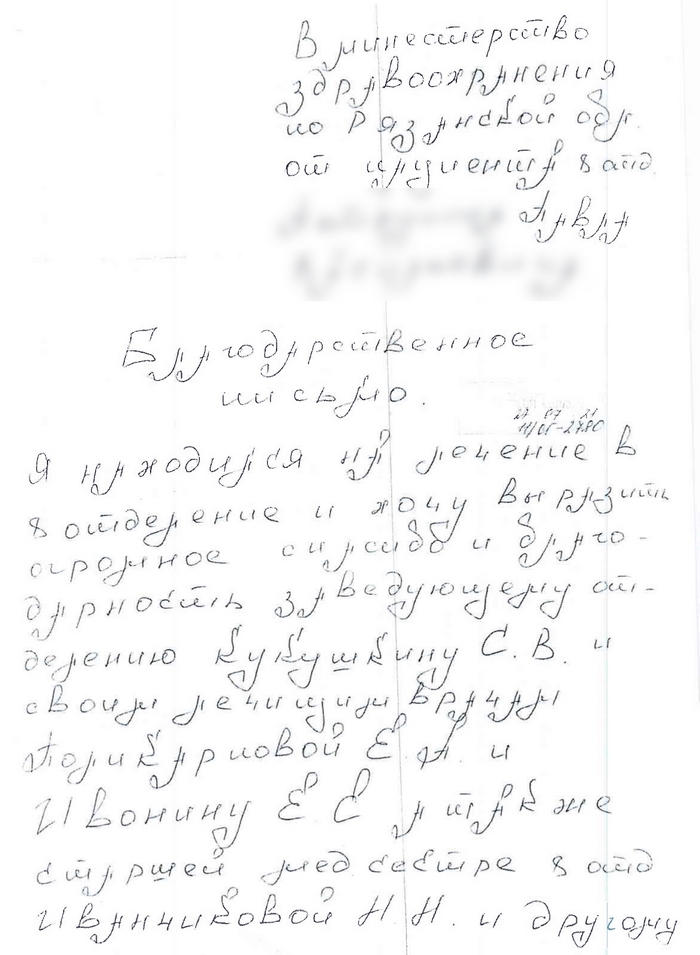 В минестерство
здравоохранения
по Рязанской обл.
от пациента 8 отд
Павла
Благодарственное
письмо.
27 07 21
11/01-2780
Я находился на лечение в
8 отделение и хочу выразить
огромное спасибо и благо-
дарность заведующему от-
делению Кукушкину С.В. и
своим лечищим врачам
Поликарповой Е.А. и
Ивонину Е Е а так же
старшей мед сестре 8 отд
Иванчиковой Н.Н. и другому